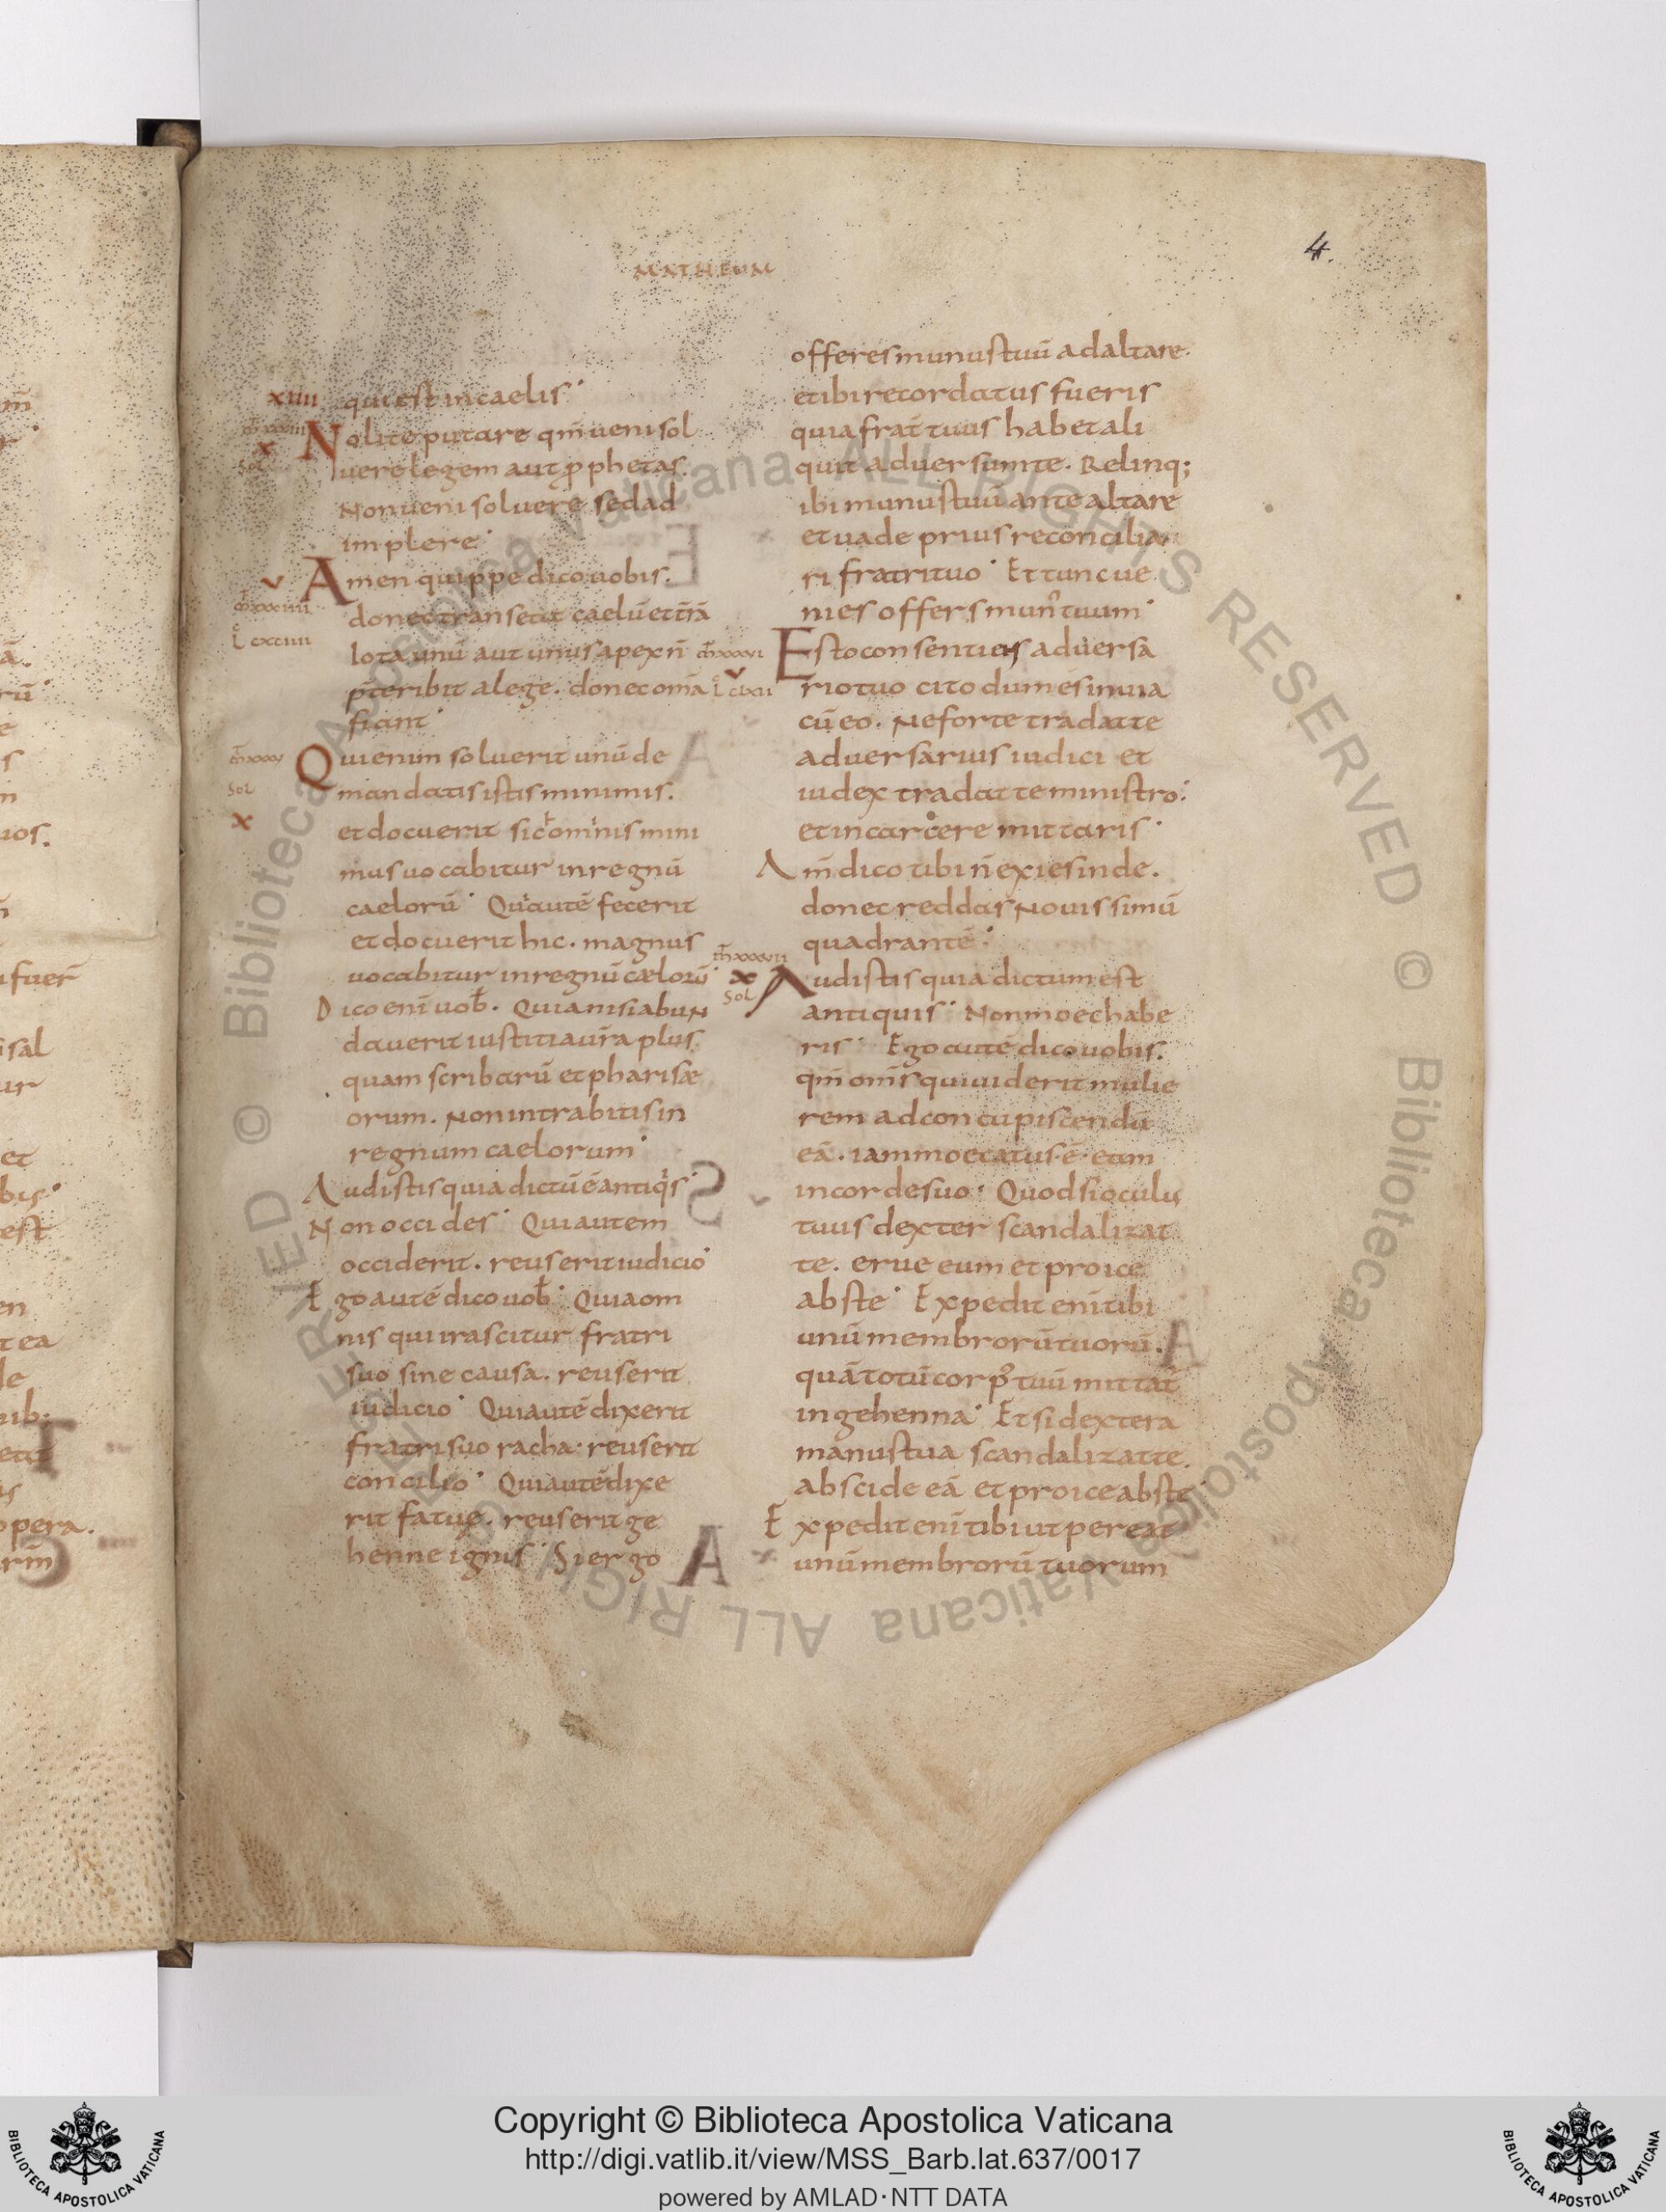 MATHEUM
4.
xiiii qui est in caelis
Nolite putare qm̄ ueni sol
uere legem aut ꝓphetas.
Non ueni soluere sed ad
implere
Amen quippe dico uobis.
donec transeat caelū et tr̄ā
Iota unū aut unus apex n̄
p̄teribit a lege. donec om̄ā
fiant
Qui enim soluerit unū de
mandatis istis minimis.
et docuerit sic omnis mini
mus uocabitur in regnū
caelorū Qui autē fecerit
et docuerit hic. magnus
uocabitur in regnū cælorū
Dico enī uob̄. Quia nisi abun
dauerit iustitia ur̄a plus
quam scribarū et pharisæ
orum. Non intrabitis in
regnum caelorum
Audistis quia dictū ē antiqis
Non occides Qui autem
occiderit. reus erit iudicio
Ego autē dico uob̄ Quia om
nis qui irascitur fratri
suo sine causa. reus erit
iudicio Qui autē dixerit
fratri suo racha. reus erit
concilio Qui autē dixe
rit fatue. reus erit ge
henne ignis Si ergo
offeres munus tuū ad altare.
et ibi recordatus fueris
quia frat̄ tuus habet ali
quit aduersum te. Relinq;
ibi munus tuū ante altare
et uade prius reconcilia
ri fratri tuo Et tunc ue
nies offers mun᾽ tuum
Esto consentiens aduersa
rio tuo cito dum es in uia
cū eo. Ne forte tradat te
aduersarius iudici et
iudex tradat te ministro
et in carcere mittaris
Am̄ dico tibi n̄ exies inde.
donec reddas Nouissimū
quadrantē
Audistis quia dictum est
antiquis Non moechabe
ris Ego autē dico uobis.
qm̄ om̄s qui uiderit mulie
rem ad concupiscendū
eā. iam moecatus ē eam
in corde suo Quod si oculus
tuus dexter scandalizat
te. erue eum et proice
abs te Expedit enī tibi
unū membrorū tuorū.
quā totū corp᾽ tuū mittat̄
in gehenna Et si dextera
manus tua scandalizat te.
abscide eā et proice abs te
Expedit enī tibi ut pereat
unū membrorū tuorum
Copyright © Biblioteca Apostolica Vaticana
http://digi.vatlib.it/view/MSS_Barb.lat.637/0017
powered by AMLAD·NTT DATA
BIBLIOTECA APOSTOLICA VATICANA
BIBLIOTECA APOSTOLICA VATICANA